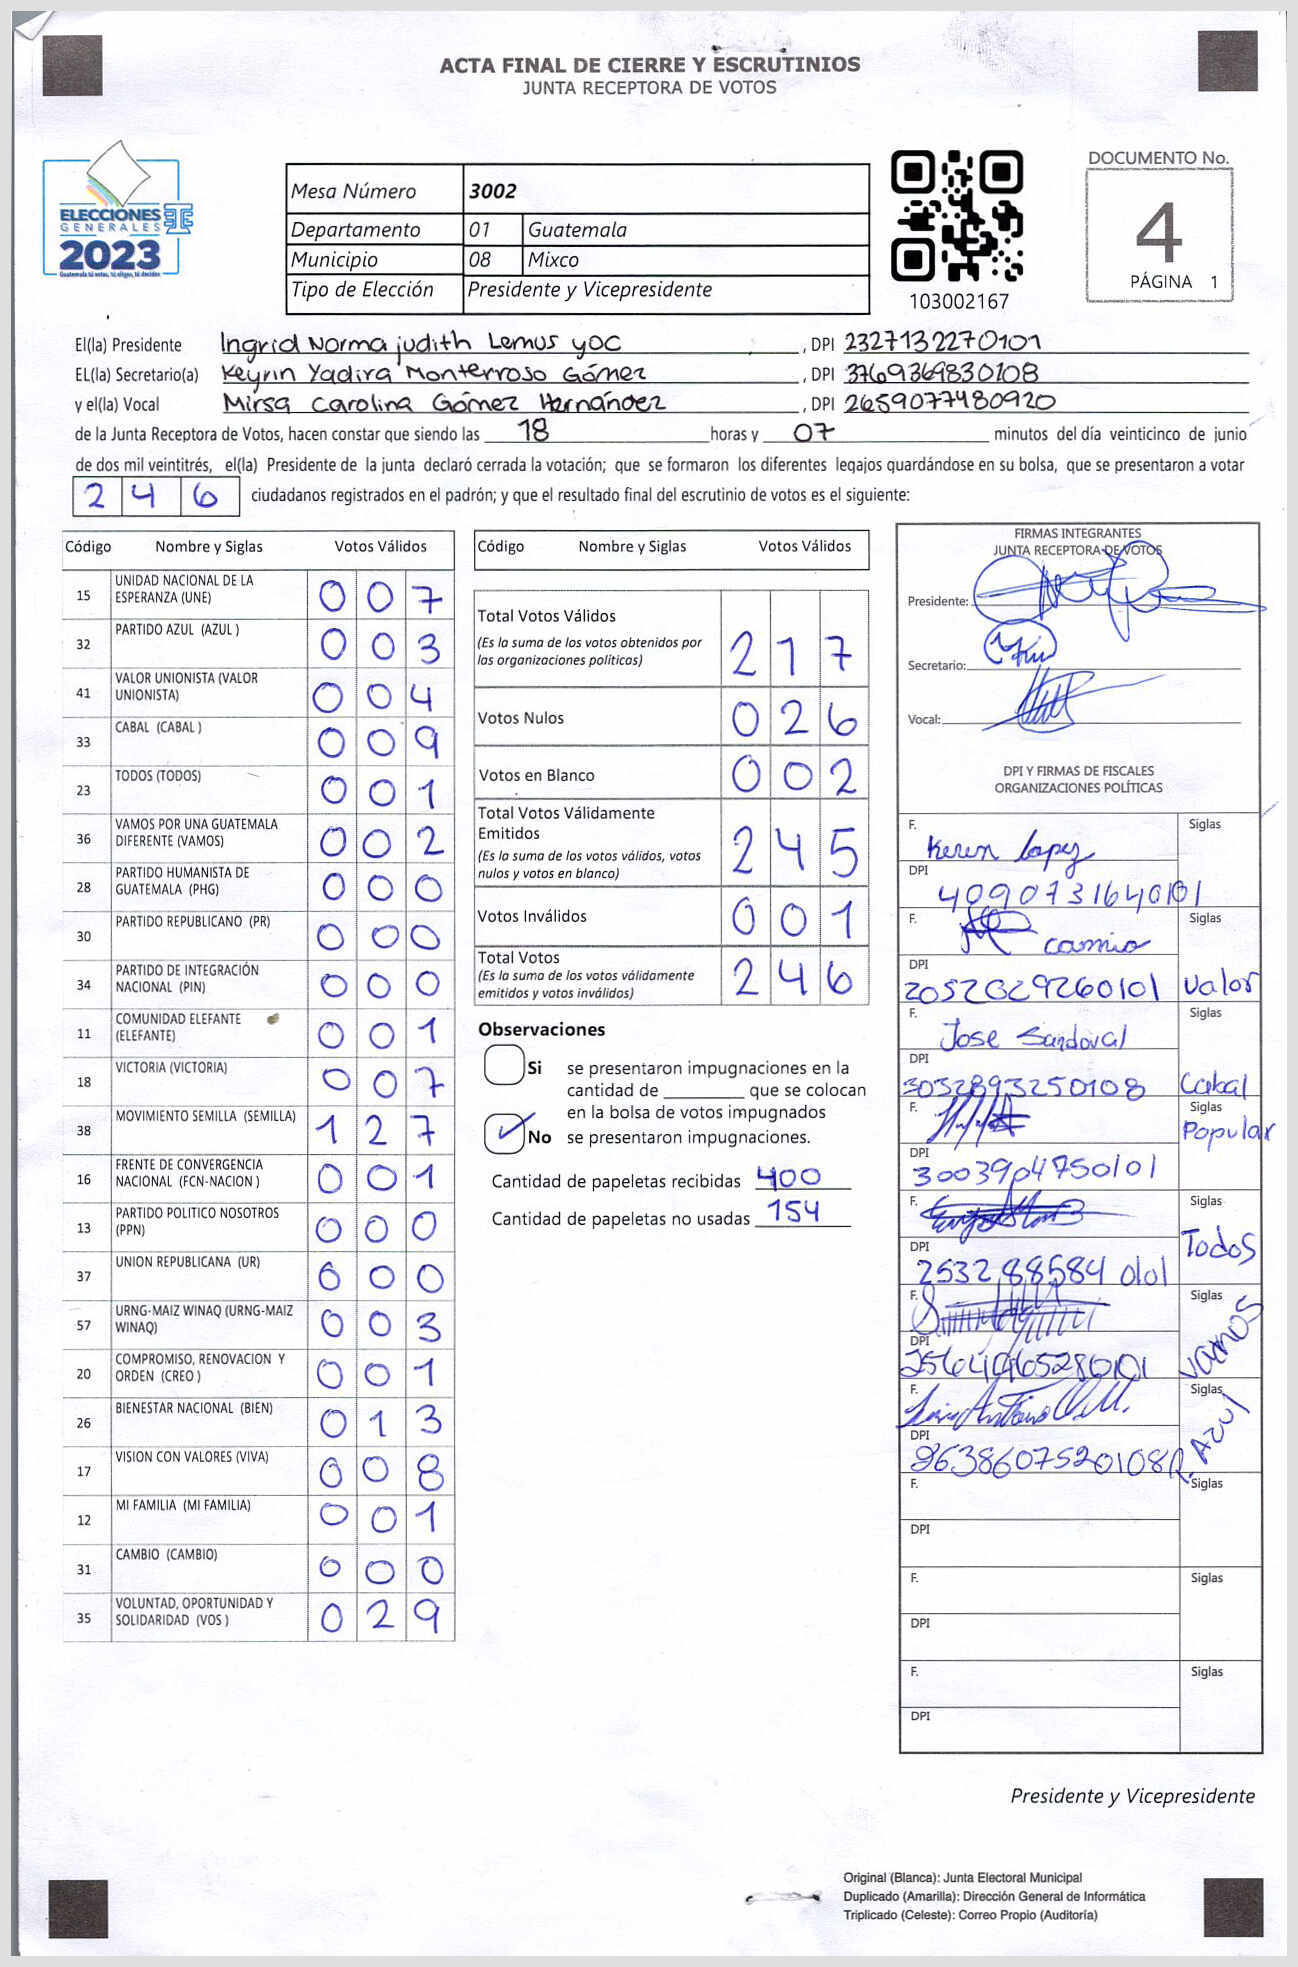 ACTA FINAL DE CIERRE Y ESCRUTINIOS
JUNTA RECEPTORA DE VOTOS
ELECCIONES
GENERALES
2023
Guatemala tú votas, tú eliges, tú decides
Mesa Número 3002
Departamento 01 Guatemala
Municipio 08 Mixco
Tipo de Elección Presidente y Vicepresidente
103002167
DOCUMENTO No.
4
PÁGINA 1
El(la) Presidente Ingrid Norma judith Lemus yoc, DPI 2327132270101
EL(la) Secretario(a) Keyrin Yadira Monterroso Gómez, DPI 3769369830108
y el(la) Vocal Mirsa Carolina Gómez Hernández, DPI 2659077480920
de la Junta Receptora de Votos, hacen constar que siendo las 18 horas y 07 minutos del día veinticinco de junio
de dos mil veintitrés, el(la) Presidente de la junta declaró cerrada la votación; que se formaron los diferentes legajos guardándose en su bolsa, que se presentaron a votar
246 ciudadanos registrados en el padrón; y que el resultado final del escrutinio de votos es el siguiente:
Código Nombre y Siglas Votos Válidos
15 UNIDAD NACIONAL DE LA ESPERANZA (UNE) 0 0 7
32 PARTIDO AZUL (AZUL ) 0 0 3
41 VALOR UNIONISTA (VALOR UNIONISTA) 0 0 4
33 CABAL (CABAL ) 0 0 9
23 TODOS (TODOS) 0 0 1
36 VAMOS POR UNA GUATEMALA DIFERENTE (VAMOS) 0 0 2
28 PARTIDO HUMANISTA DE GUATEMALA (PHG) 0 0 0
30 PARTIDO REPUBLICANO (PR) 0 0 0
34 PARTIDO DE INTEGRACIÓN NACIONAL (PIN) 0 0 0
11 COMUNIDAD ELEFANTE (ELEFANTE) 0 0 1
18 VICTORIA (VICTORIA) 0 0 7
38 MOVIMIENTO SEMILLA (SEMILLA) 1 2 7
16 FRENTE DE CONVERGENCIA NACIONAL (FCN-NACION ) 0 0 1
13 PARTIDO POLITICO NOSOTROS (PPN) 0 0 0
37 UNION REPUBLICANA (UR) 0 0 0
57 URNG-MAIZ WINAQ (URNG-MAIZ WINAQ) 0 0 3
20 COMPROMISO, RENOVACION Y ORDEN (CREO ) 0 0 1
26 BIENESTAR NACIONAL (BIEN) 0 1 3
17 VISION CON VALORES (VIVA) 0 0 8
12 MI FAMILIA (MI FAMILIA) 0 0 1
31 CAMBIO (CAMBIO) 0 0 0
35 VOLUNTAD, OPORTUNIDAD Y SOLIDARIDAD (VOS ) 0 2 9
Código Nombre y Siglas Votos Válidos
Total Votos Válidos 2 1 7
(Es la suma de los votos obtenidos por
las organizaciones políticas)
Votos Nulos 0 2 6
Votos en Blanco 0 0 2
Total Votos Válidamente
Emitidos 2 4 5
(Es la suma de los votos válidos, votos
nulos y votos en blanco)
Votos Inválidos 0 0 1
Total Votos 2 4 6
(Es la suma de los votos válidamente
emitidos y votos inválidos)
Observaciones
Si se presentaron impugnaciones en la
cantidad de ________ que se colocan
en la bolsa de votos impugnados
No se presentaron impugnaciones.
Cantidad de papeletas recibidas 400
Cantidad de papeletas no usadas 154
FIRMAS INTEGRANTES
JUNTA RECEPTORA DE VOTOS
Presidente:
Secretario:
Vocal:
DPI Y FIRMAS DE FISCALES
ORGANIZACIONES POLÍTICAS
F. Keren Lopez Siglas
DPI 4090731640101
F. Siglas
DPI Valor
F. Jose Sandoval Siglas
DPI 3032893250108 Cabal
F. Siglas
Popular
DPI 3003904750101
F. Siglas
Todos
DPI 2532885840101
F. Siglas
DPI Vamos
F. Siglas
DPI 2638607520108 P. Azul
F. Siglas
DPI
F. Siglas
DPI
F. Siglas
DPI
Presidente y Vicepresidente
Original (Blanca): Junta Electoral Municipal
Duplicado (Amarilla): Dirección General de Informática
Triplicado (Celeste): Correo Propio (Auditoría)